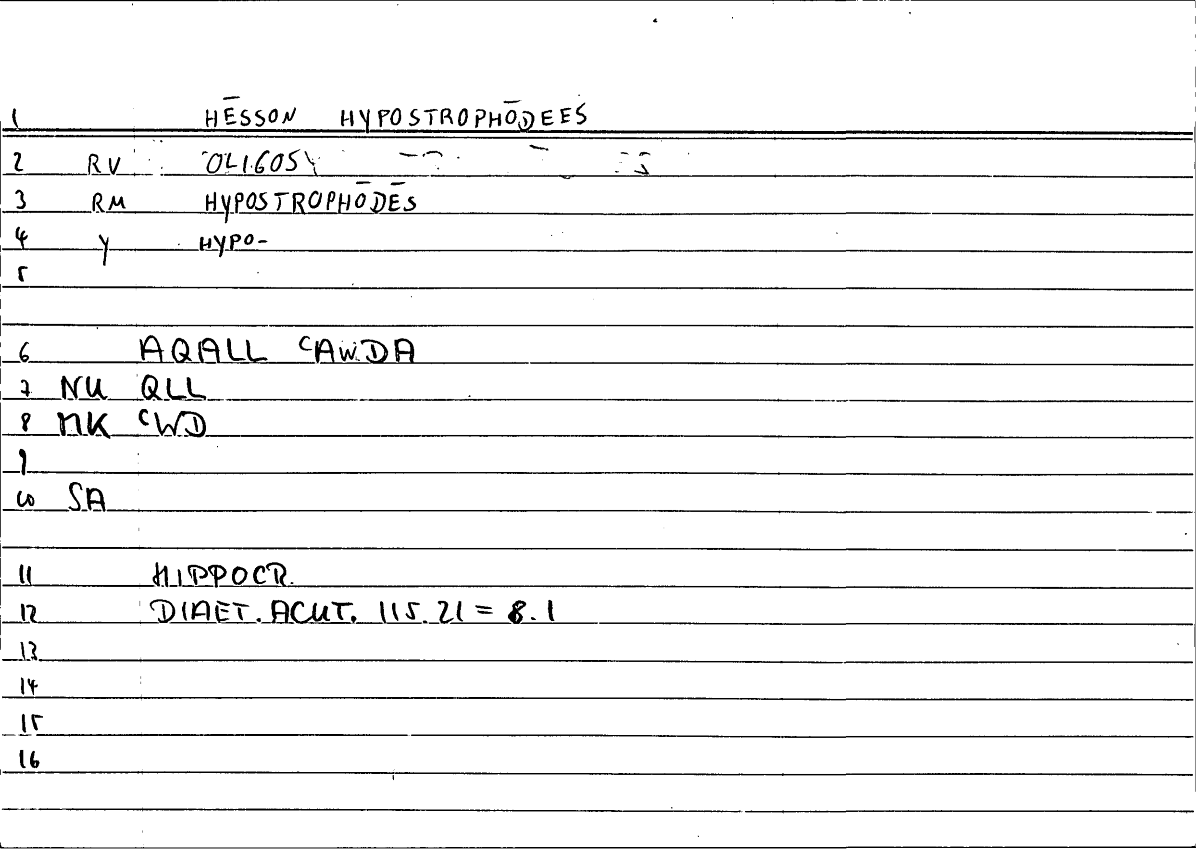 1 HĒSSON HYPOSTROPHŌDEES
2 RV
3 RM HYPOSTROPHŌDĒS
4 Y HYPO-
5
6 AQALL ʿAWDA
7 NU QLL
8 MK ʿWD
9
10 SA
11 HIPPOCR.
12 DIAET. ACUT. 115.21 = 8.1
13
14
15
16